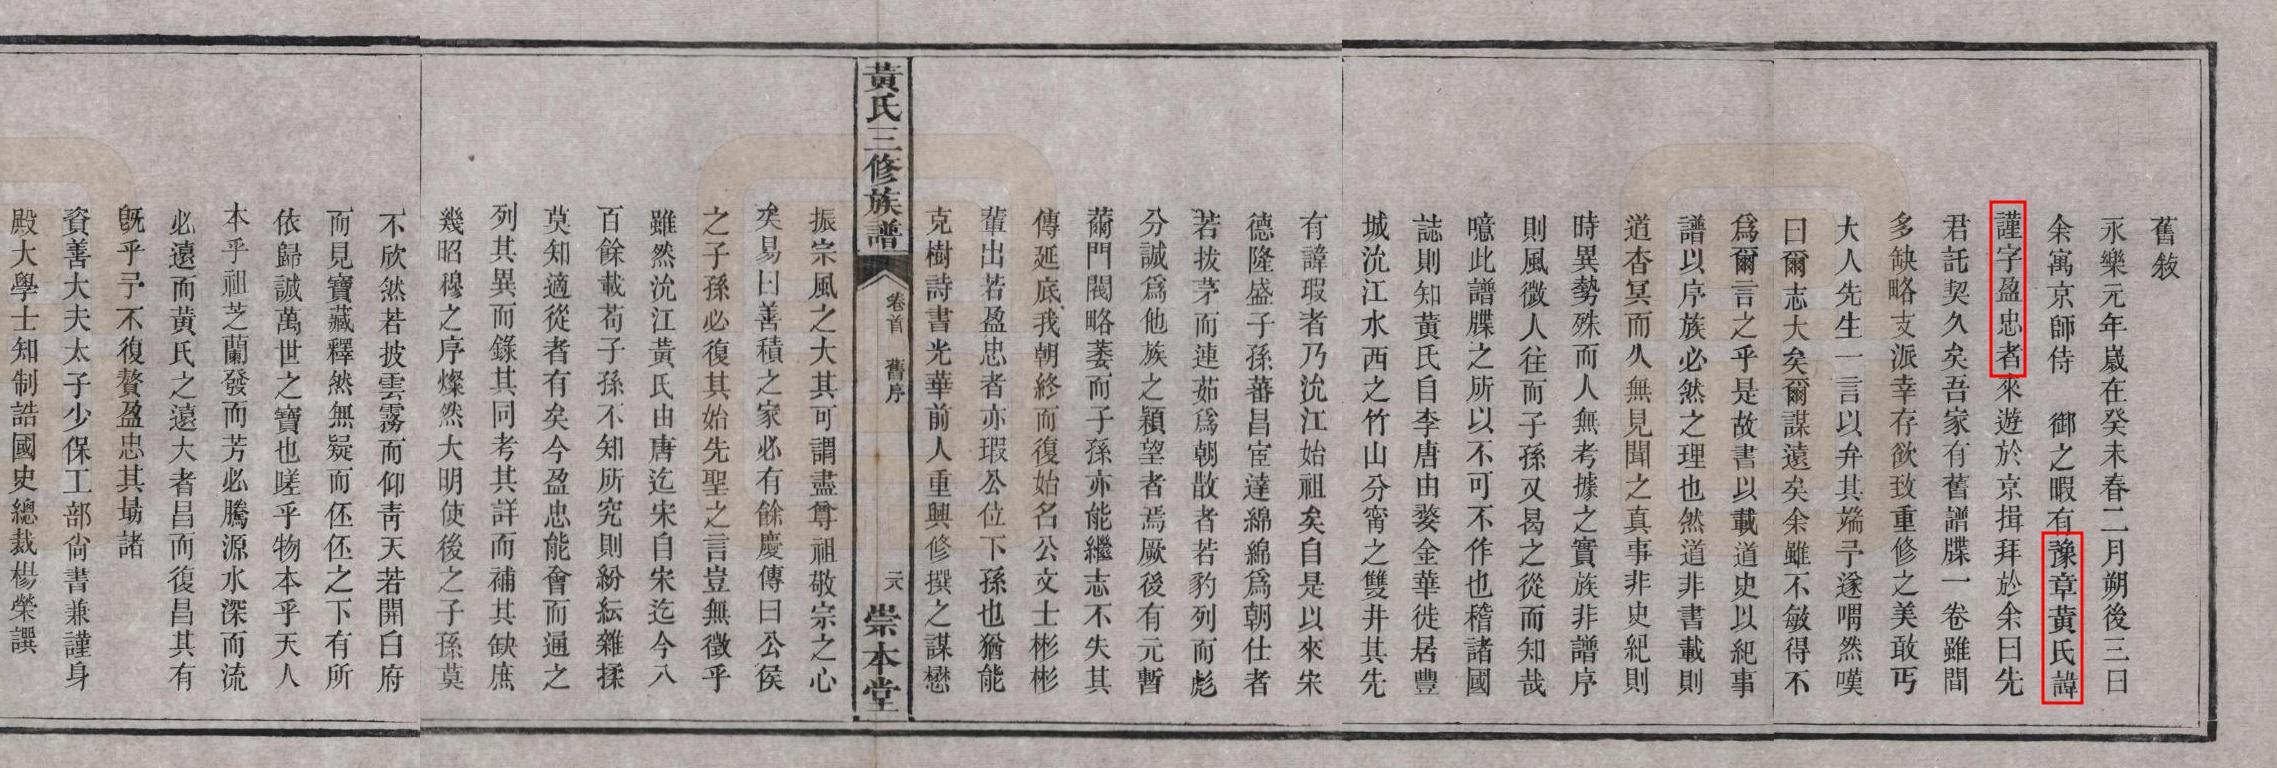 舊敘
永樂元年嵗在癸未春二月朔後三日
余寓京師侍　御之暇有豫章黃氏諱
謹字盈忠者來遊於京揖拜於余曰先
君託契久矣吾家有舊譜牒一卷雖間
多缺略支派幸存欲致重修之美敢丐
大人先生一言以弁其端予遂喟然嘆
曰爾志大矣爾謀遠矣余雖不敏得不
爲爾言之乎是故書以載道史以紀事
譜以序族必然之理也然道非書載則
道杳冥而久無見聞之真事非史紀則
時異勢殊而人無考據之實族非譜序
則風微人往而子孫又曷之從而知哉
噫此譜牒之所以不可不作也稽諸國
誌則知黃氏自李唐由婺金華徙居豐
城沇江水西之竹山分甯之雙井其先
有諱瑕者乃沇江始祖矣自是以來朱
德隆盛子孫蕃昌宦達綿綿爲朝仕者
若拔茅而連茹爲朝散者若豹列而彪
分誠爲他族之穎望者焉厥後有元暫
薾門閥略萎而子孫亦能繼志不失其
傳延底我朝終而復始名公文士彬彬
輩出若盈忠者亦瑕公位下孫也猶能
克樹詩書光華前人重興修撰之謀懋
黃氏三修族譜　卷首　舊序　二八　崇本堂
振宗風之大其可謂盡尊祖敬宗之心
矣易曰善積之家必有餘慶傳曰公侯
之子孫必復其始先聖之言豈無徵乎
雖然沇江黃氏由唐迄宋自宋迄今八
百餘載苟子孫不知所究則紛紜雜揉
莫知適從者有矣今盈忠能會而通之
列其異而錄其同考其詳而補其缺庶
幾昭穆之序燦然大明使後之子孫莫
不欣然若披雲霧而仰靑天若開白府
而見寶藏釋然無疑而伾伾之下有所
依歸誠萬世之寶也嗟乎物本乎天人
本乎祖芝蘭發而芳必騰源水深而流
必遠而黃氏之遠大者昌而復昌其有
旣乎予不復贅盈忠其勗諸
資善大夫太子少保工部尙書兼謹身
殿大學士知制誥國史總裁楊榮譔